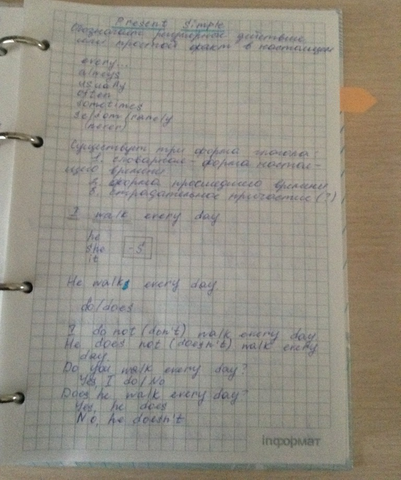 Present Simple
Обозначает регулярное действие
или простой факт в настоящем
every...
always
usually
often
sometimes
seldom (rarely
(never)
Существует три формы глагола:
1. словарная - форма настоя-
щего времени
2. форма прошедшего времени
3. страдательное причастие (?)
I walk every day
he
she - S
it
He walks every day
do/does
I do not (don't) walk every day
He does not (doesn't) walk every
day.
Do you walk every day?
Yes, I do/No
Does he walk every day?
Yes, he does
No, he doesn't
інформат